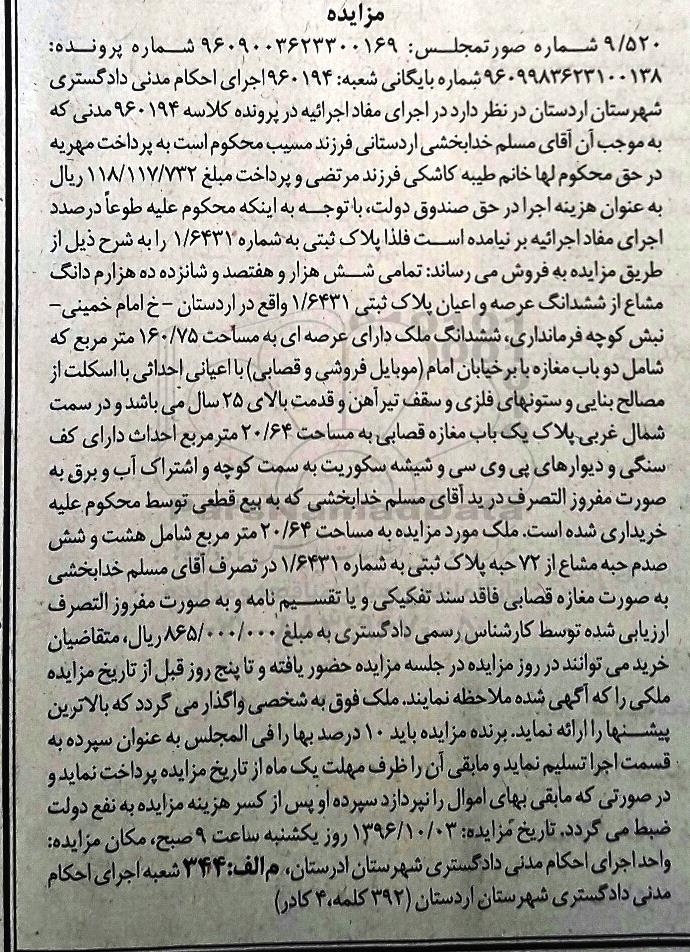 مزایده
۹/۵۲۰ شماره صورتمجلس: ۹۶۰۹۰۰۳۶۲۳۳۰۰۱۶۹ شماره پرونده:
۹۶۰۹۹۸۳۶۲۳۱۰۰۱۳۸ شماره بایگانی شعبه: ۹۶۰۱۹۴ اجرای احکام مدنی دادگستری
شهرستان اردستان در نظر دارد در اجرای مفاد اجرائیه در پرونده کلاسه ۹۶۰۱۹۴ مدنی که
به موجب آن آقای مسلم خدابخشی اردستانی فرزند مسیب محکوم است به پرداخت مهریه
در حق محکوم لها خانم طیبه کاشکی فرزند مرتضی و پرداخت مبلغ ۱۱۸/۱۱۷/۷۳۲ ریال
به عنوان هزینه اجرا در حق صندوق دولت، با توجه به اینکه محکوم علیه طوعاً درصدد
اجرای مفاد اجرائیه بر نیامده است فلذا پلاک ثبتی به شماره ۱/۶۴۳۱ را به شرح ذیل از
طریق مزایده به فروش می رساند: تمامی شش هزار و هفتصد و شانزده ده هزارم دانگ
مشاع از ششدانگ عرصه و اعیان پلاک ثبتی ۱/۶۴۳۱ واقع در اردستان – خ امام خمینی–
نبش کوچه فرمانداری، ششدانگ ملک دارای عرصه ای به مساحت ۱۶۰/۷۵ متر مربع که
شامل دو باب مغازه با بر خیابان امام (موبایل فروشی و قصابی) با اعیانی احداثی با اسکلت از
مصالح بنایی و ستونهای فلزی و سقف تیرآهن و قدمت بالای ۲۵ سال می باشد و در سمت
شمال غربی پلاک یک باب مغازه قصابی به مساحت ۲۰/۶۴ متر مربع احداث دارای کف
سنگی و دیوارهای پی وی سی و شیشه سکوریت به سمت کوچه و اشتراک آب و برق به
صورت مفروز التصرف در ید آقای مسلم خدابخشی که به بیع قطعی توسط محکوم علیه
خریداری شده است. ملک مورد مزایده به مساحت ۲۰/۶۴ متر مربع شامل هشت و شش
صدم حبه مشاع از ۷۲ حبه پلاک ثبتی به شماره ۱/۶۴۳۱ در تصرف آقای مسلم خدابخشی
به صورت مغازه قصابی فاقد سند تفکیکی و یا تقسیم نامه و به صورت مفروز التصرف
ارزیابی شده توسط کارشناس رسمی دادگستری به مبلغ ۸۶۵/۰۰۰/۰۰۰ ریال، متقاضیان
خرید می توانند در روز مزایده در جلسه مزایده حضور یافته و تا پنج روز قبل از تاریخ مزایده
ملکی را که آگهی شده ملاحظه نمایند. ملک فوق به شخصی واگذار می گردد که بالاترین
پیشنها را ارائه نماید. برنده مزایده باید ۱۰ درصد بها را فی المجلس به عنوان سپرده به
قسمت اجرا تسلیم نماید و مابقی آن را ظرف مهلت یک ماه از تاریخ مزایده پرداخت نماید و
در صورتی که مابقی بهای اموال را نپردازد سپرده او پس از کسر هزینه مزایده به نفع دولت
ضبط می گردد. تاریخ مزایده: ۱۳۹۶/۱۰/۰۳ روز یکشنبه ساعت ۹ صبح، مکان مزایده:
واحد اجرای احکام مدنی دادگستری شهرستان ادرستان، م الف: ۳۴۴ شعبه اجرای احکام
مدنی دادگستری شهرستان اردستان (۳۹۲ کلمه، ۴ کادر)